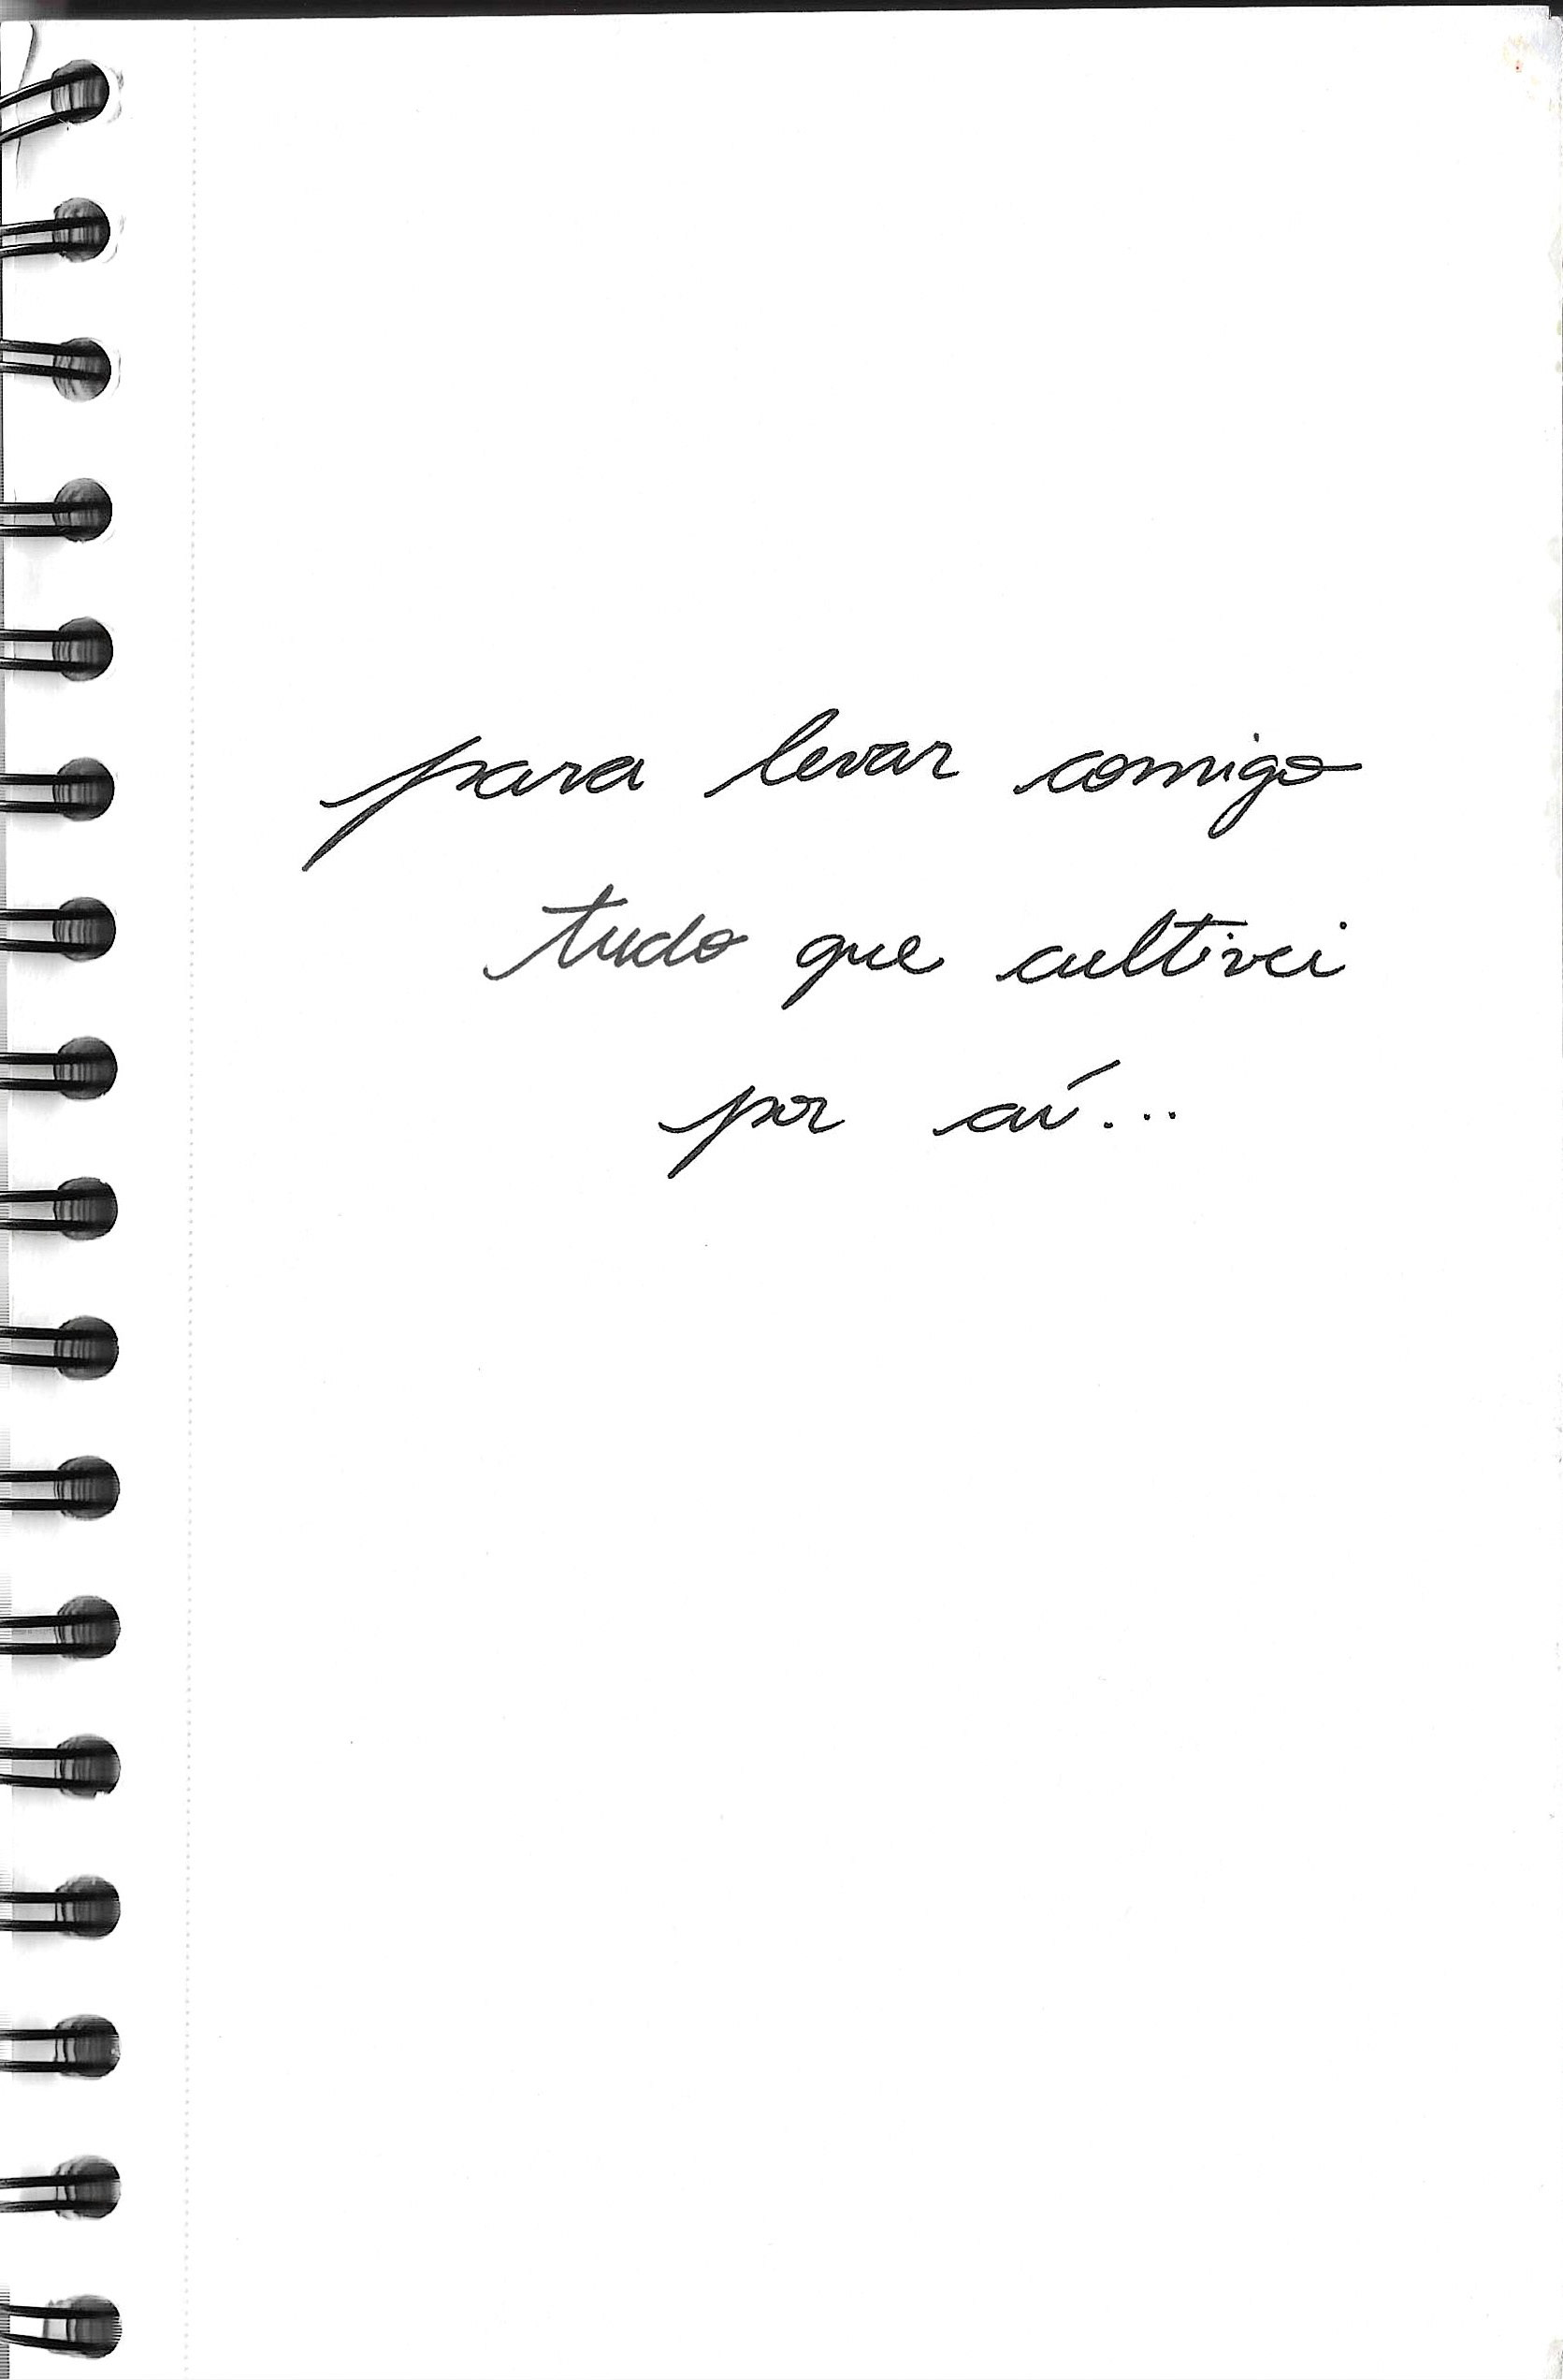 para levar comigo
tudo que cultivei
por aí...